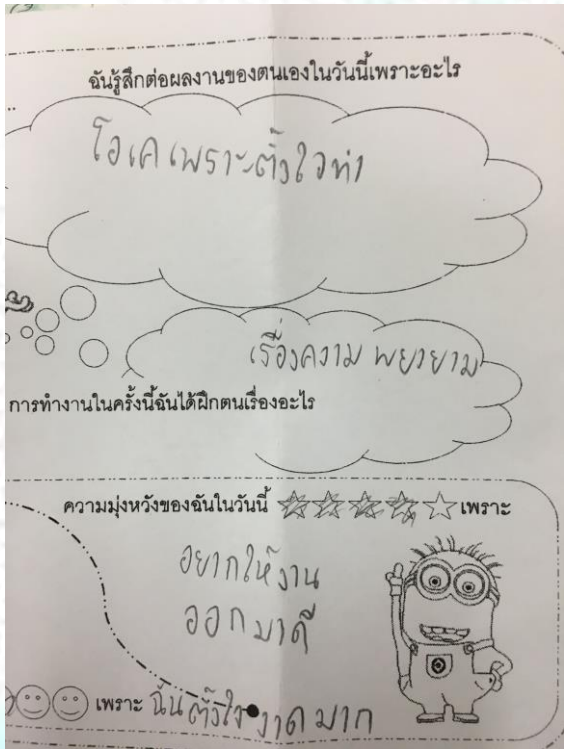 ฉันรู้สึกต่อผลงานของตนเองในวันนี้เพราะอะไร
..
โอเคเพราะตั้งใจทำ
เรื่องความพยายาม
การทำงานในครั้งนี้ฉันได้ฝึกตนเรื่องอะไร
ความมุ่งหวังของฉันในวันนี้ เพราะ
อยากให้งาน
ออกมาดี
เพราะ ฉันตั้งใจวาดมาก